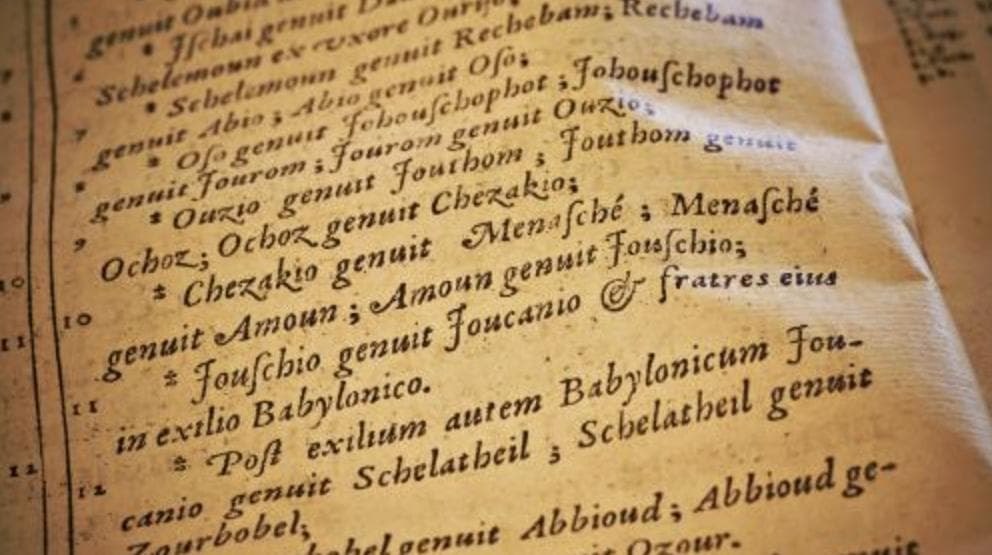 genuit
* Jſchai genuit
Schelemoun ex vxore
* Schelemoun genuit Rechebam; Rechebam
genuit Abio; Abio genuit Oſo;
* Oſo genuit Johouſchophot; Johouſchophot
genuit Jourom; Jourom genuit Ouzio;
* Ouzio genuit Jouthom; Jouthom genuit
Ochoz; Ochoz genuit Chezakio;
* Chezakio genuit Menaſché; Menaſché
genuit Amoun; Amoun genuit Jouſchio;
* Jouſchio genuit Joucanio & fratres eius
in exilio Babylonico.
* Poſt exilium autem Babylonicum Jou-
canio genuit Schelatheil; Schelatheil genuit
Zourbobel;
genuit Abbioud; Abbioud ge-
Ozour.
7
8
9
10
11
12
10
11
12